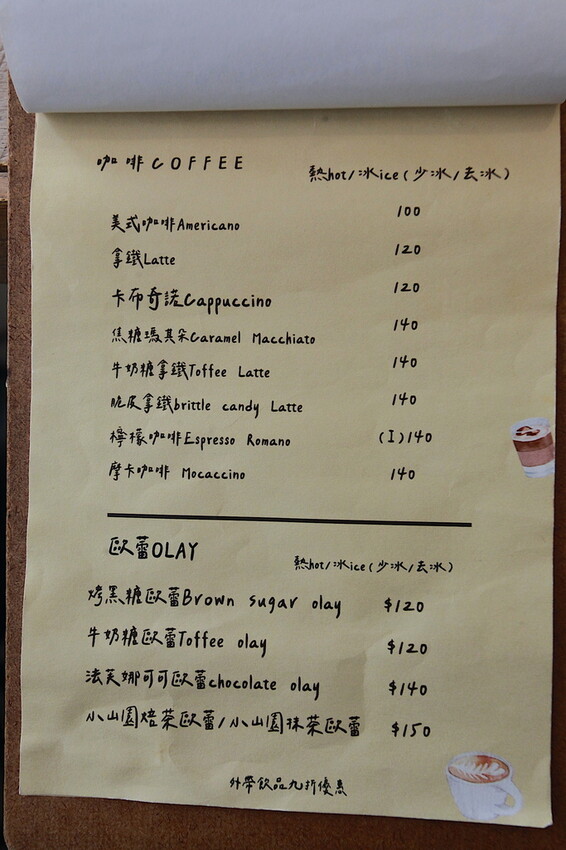 咖啡COFFEE 熱hot/冰ice(少冰/去冰)
美式咖啡Americano 100
拿鐵Latte 120
卡布奇諾Cappuccino 120
焦糖瑪其朵Caramel Macchiato 140
牛奶糖拿鐵Toffee Latte 140
脆皮拿鐵brittle candy Latte 140
檸檬咖啡Espresso Romano (I)140
摩卡咖啡 Mocaccino 140
歐蕾OLAY 熱hot/冰ice(少冰/去冰)
烤黑糖歐蕾Brown sugar olay $120
牛奶糖歐蕾Toffee olay $120
法芙娜可可歐蕾chocolate olay $140
小山園焙茶歐蕾/小山園抹茶歐蕾 $150
外帶飲品九折優惠